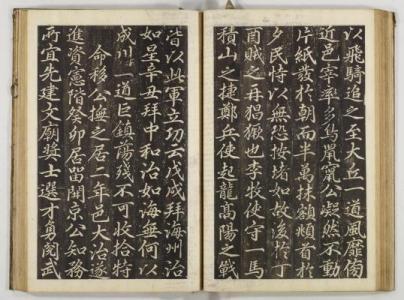 以飛騎追之至大丘一道風靡傍
近邑宰率多鳥鼠竄公凝然不動
片紙發於朝而半萬抹額首於
夕民恃以無恐按堵如故後於丁
酉賊之再猖獗也李牧使守一馬
積山之捷鄭兵使起龍高陽之戰
皆以此軍立功云戊戌拜海州治
如星辛丑拜中和治如海無何以
成川一道巨鎮蕩殘不可收拾特
命移公撫之居二年邑大治遂
進資憲階癸卯居留開京公知務
所宜先建文廟奬士選才勇閱武